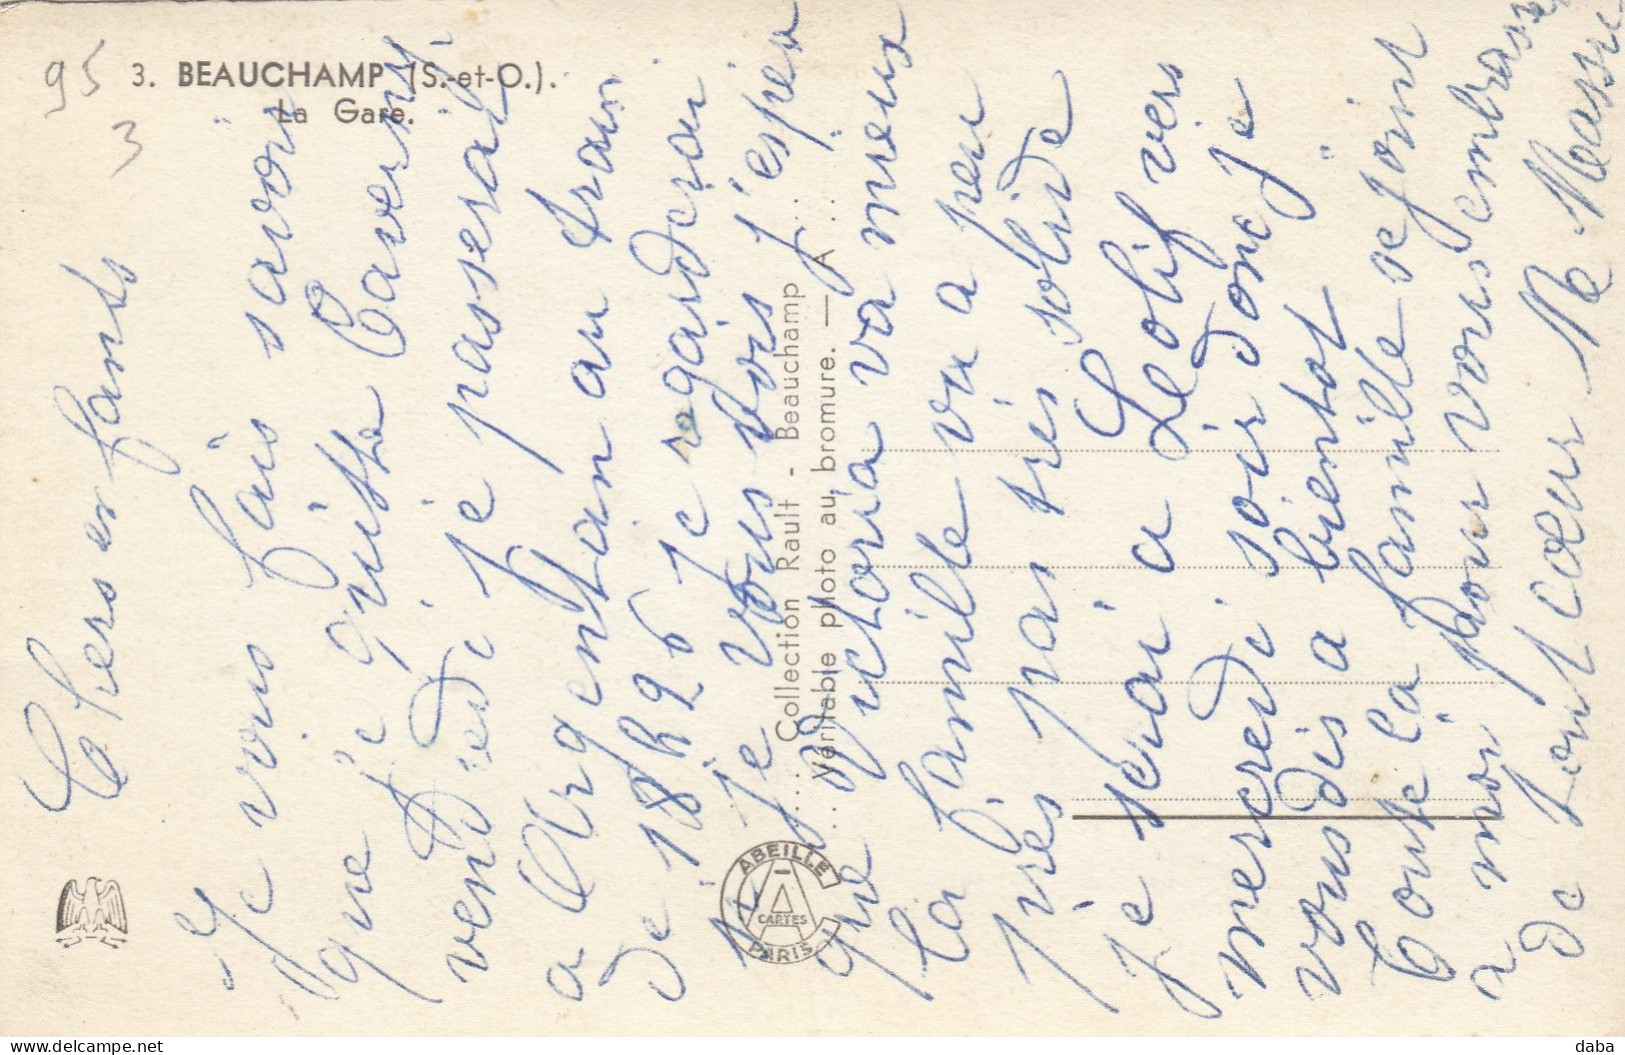 95
3
3. BEAUCHAMP (S.-et-O.).
La Gare.
Chers enfants
Je vous fais savoir
que je quitte Taverny
vendredi je passerai
a Argentan au train
de 18h26 je regarderai
si je vous vois j'espère
que Victoria va mieux
la famille va a peu
près pas très solide
je serai a Lolif vers
mercredi soir donc je
vous dis a bientot
toute la famille se joint
a moi pour vous embrasser
de tout coeur
Collection Rault - Beauchamp
Véritable photo au bromure. — A
ABEILLE
CARTES
PARIS
daba
delcampe.net